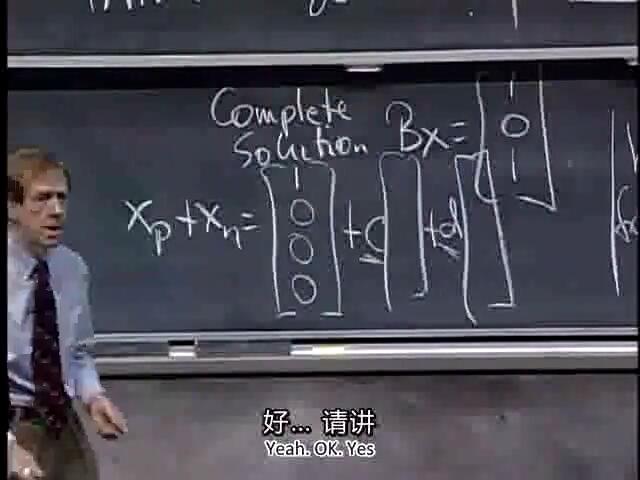 Complete
Solution Bx = [1 0 1]
x_p + x_n = [1 0 0 0] + c [ ] + d [ ]
好... 请讲
Yeah. OK. Yes